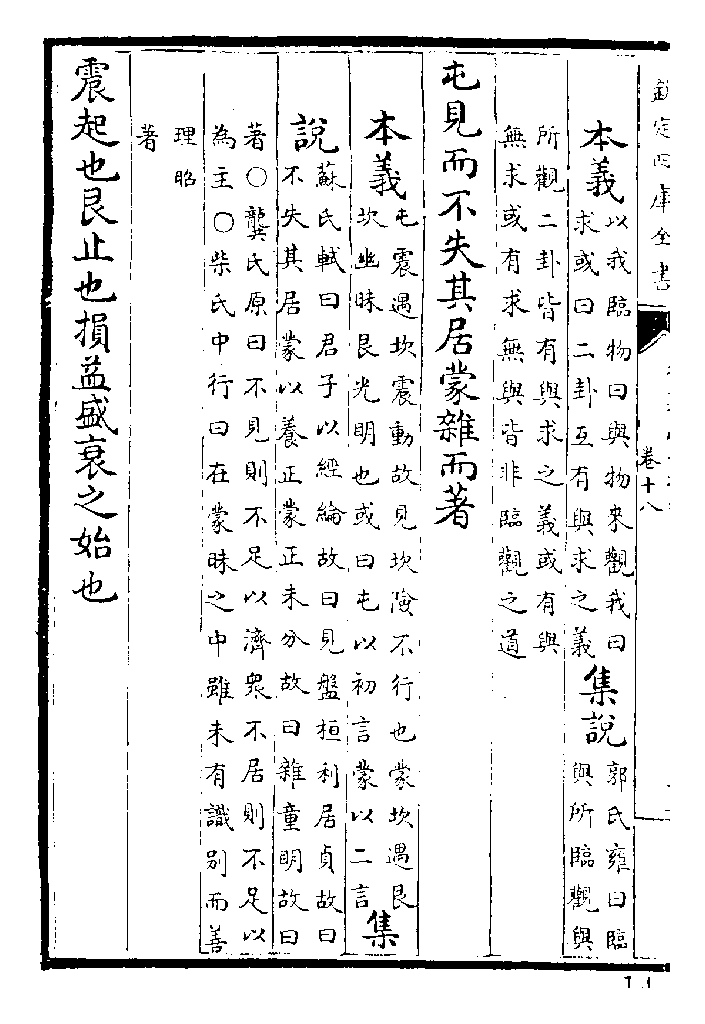 欽定四庫全書
卷十八
本義以我臨物曰與物來觀我曰
求或曰二卦互有與求之義集說郭氏雍曰臨
與所臨觀與
所觀二卦皆有與求之義或有與
無求或有求無與皆非臨觀之道
屯見而不失其居蒙雜而著
本義屯震遇坎震動故見坎險不行也蒙坎遇艮
坎幽昧艮光明也或曰屯以初言蒙以二言集
說蘇氏軾曰君子以經綸故曰見盤桓利居貞故曰
不失其居蒙以養正蒙正未分故曰雜童明故曰
著○龔氏原曰不見則不足以濟衆不居則不足以
為主○柴氏中行曰在蒙昧之中雖未有識別而善
理昭
著
震起也艮止也損益盛衰之始也